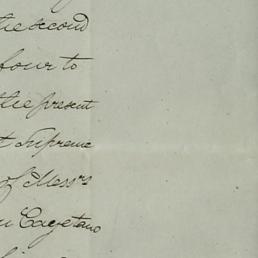 the second
four to
the present
t Supreme
of Messrs
n Cayetano